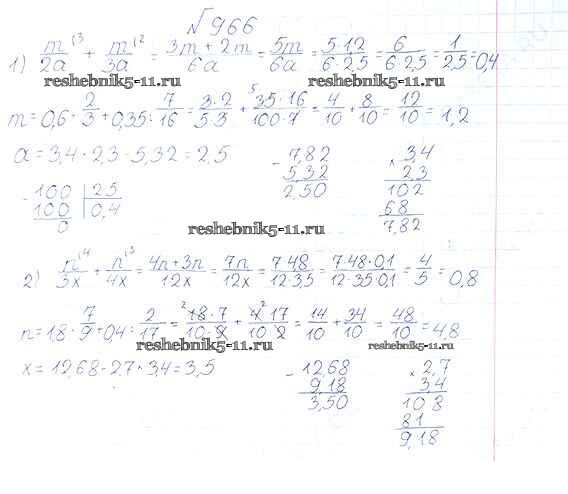 √966
1) m/2a ⁽³ + m/3a ⁽² = 3m + 2m/6a = 5m/6a = 5·1,2/6·2,5 = 6/6·2,5 = 1/2,5 = 0,4
reshebnik5-11.ru reshebnik5-11.ru
m = 0,6 · 2/3 + 0,35 : 7/16 = 3·2/5·3 + 35·16/100·7 = 4/10 + 8/10 = 12/10 = 1,2
a = 3,4 · 2,3 - 5,32 = 2,5
- 7,82
5,32
2,50
× 3,4
2,3
102
68
7,82
- 100 | 25
100 | 0,4
0
reshebnik5-11.ru
2) n/3x ⁽⁴ + n/4x ⁽³ = 4n+3n/12x = 7n/12x = 7·4,8/12·3,5 = 7·48·0,1/12·35·0,1 = 4/5 = 0,8
n = 1,8 · 7/9 + 0,4 : 2/17 = 18·7/10·9 + 4·17/10·2 = 14/10 + 34/10 = 48/10 = 4,8
reshebnik5-11.ru reshebnik5-11.ru
x = 12,68 - 2,7 · 3,4 = 3,5
- 12,68
9,18
3,50
× 2,7
3,4
108
81
9,18